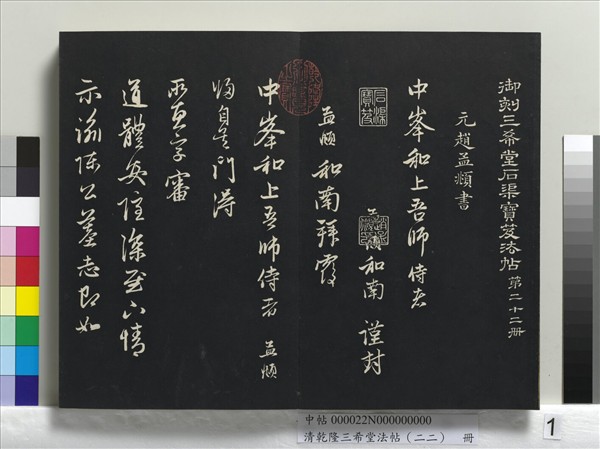 御刻三希堂石渠寶笈法帖 第二十二冊
元趙孟頫書
中峯和上吾師 侍者
石渠寶笈
和南 謹封
孟頫 和南拜覆
中峯和上吾師侍者 孟頫
歸自吴門得
所惠字審
道體安隱深慰下情
示諭陳公墓志即如
中帖 000022N000000000
清乾隆三希堂法帖（二二） 冊
1